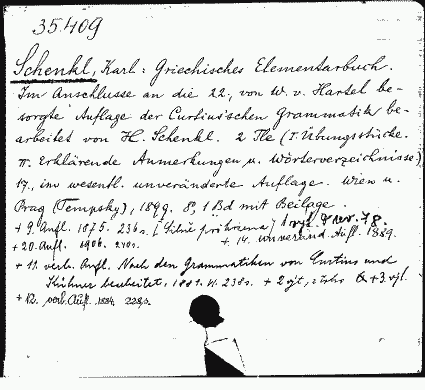 35.409
Schenkl, Karl: Griechisches Elementarbuch.
Im Anschlusse an die 22., von W. v. Hartel be-
sorgte Auflage der Curtius'schen Grammatik be-
arbeitet von H. Schenkl. 2 Tle (I. Übungsstücke.
II. Erklärende Anmerkungen u. Wörterverzeichnisse.)
17., im wesentl. unveränderte Auflage. Wien u.
Prag (Tempsky), 1899. 8°, 1 Bd mit Beilage.
+ 9. Aufl. 1875. 236 s.
+ 14. unveränd. Aufl. 1889.
+ 20. Aufl. 1906.
+ 11. verb. Aufl. Nach den Grammatiken von Curtius und
Kühner bearbeitet, 1881. 238 s.
+ 12. verb. Aufl. 1884. 228 s.